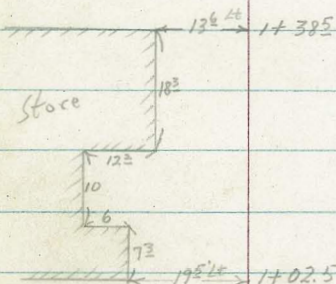 13⁶ Lt 1+38⁵
18³
Store
12³
10
6
7³
19⁵ Lt 1+02.5